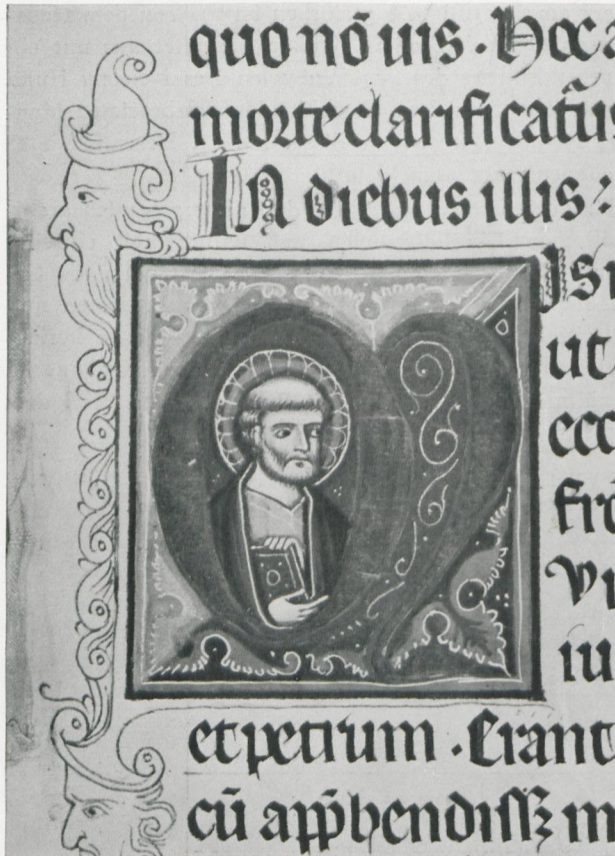 quo nō uis. Hoc a
morte clarificatū
In diebus illis:
M isi
ut
ecc
frō
iu
et petrum. Erant
cū app̄hendissꝫ m